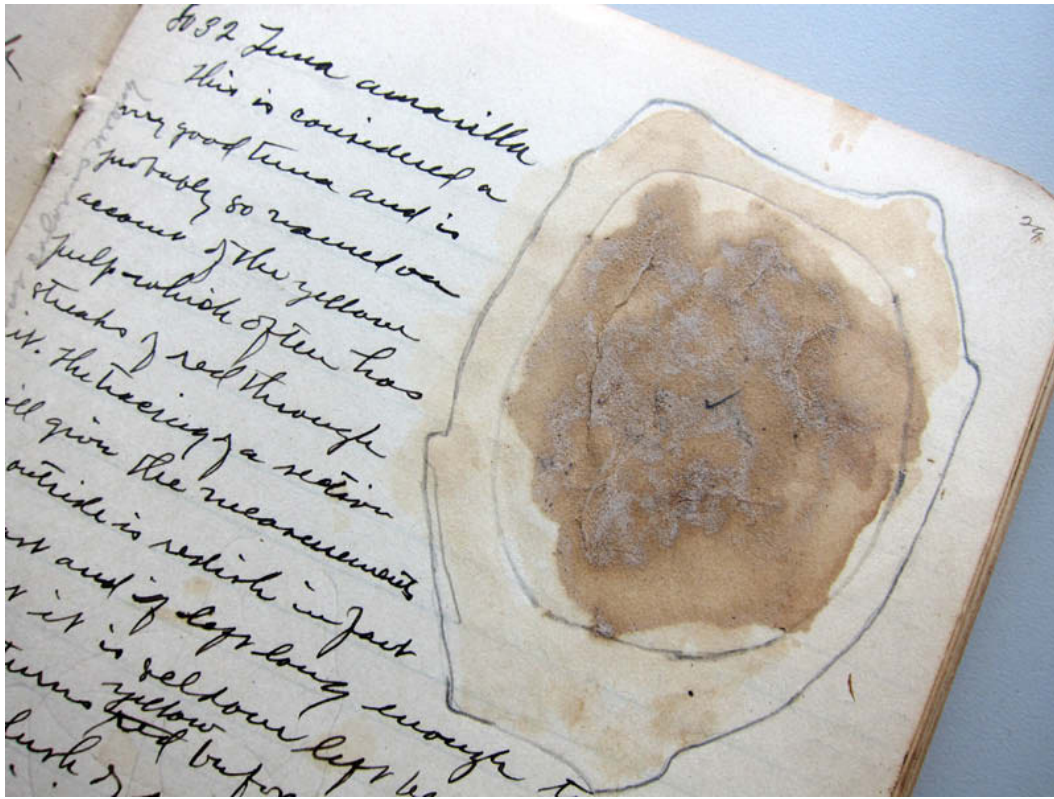 8032 Tuna amarilla
This is considered a
very good tuna and is
probably so named on
account of the yellow
pulp which often has
streaks of red through
it. The tracing of a section
will give the measurements
outside is redish in fact
and if left long enough
it is seldom left
turns yellow red before
blush of
28